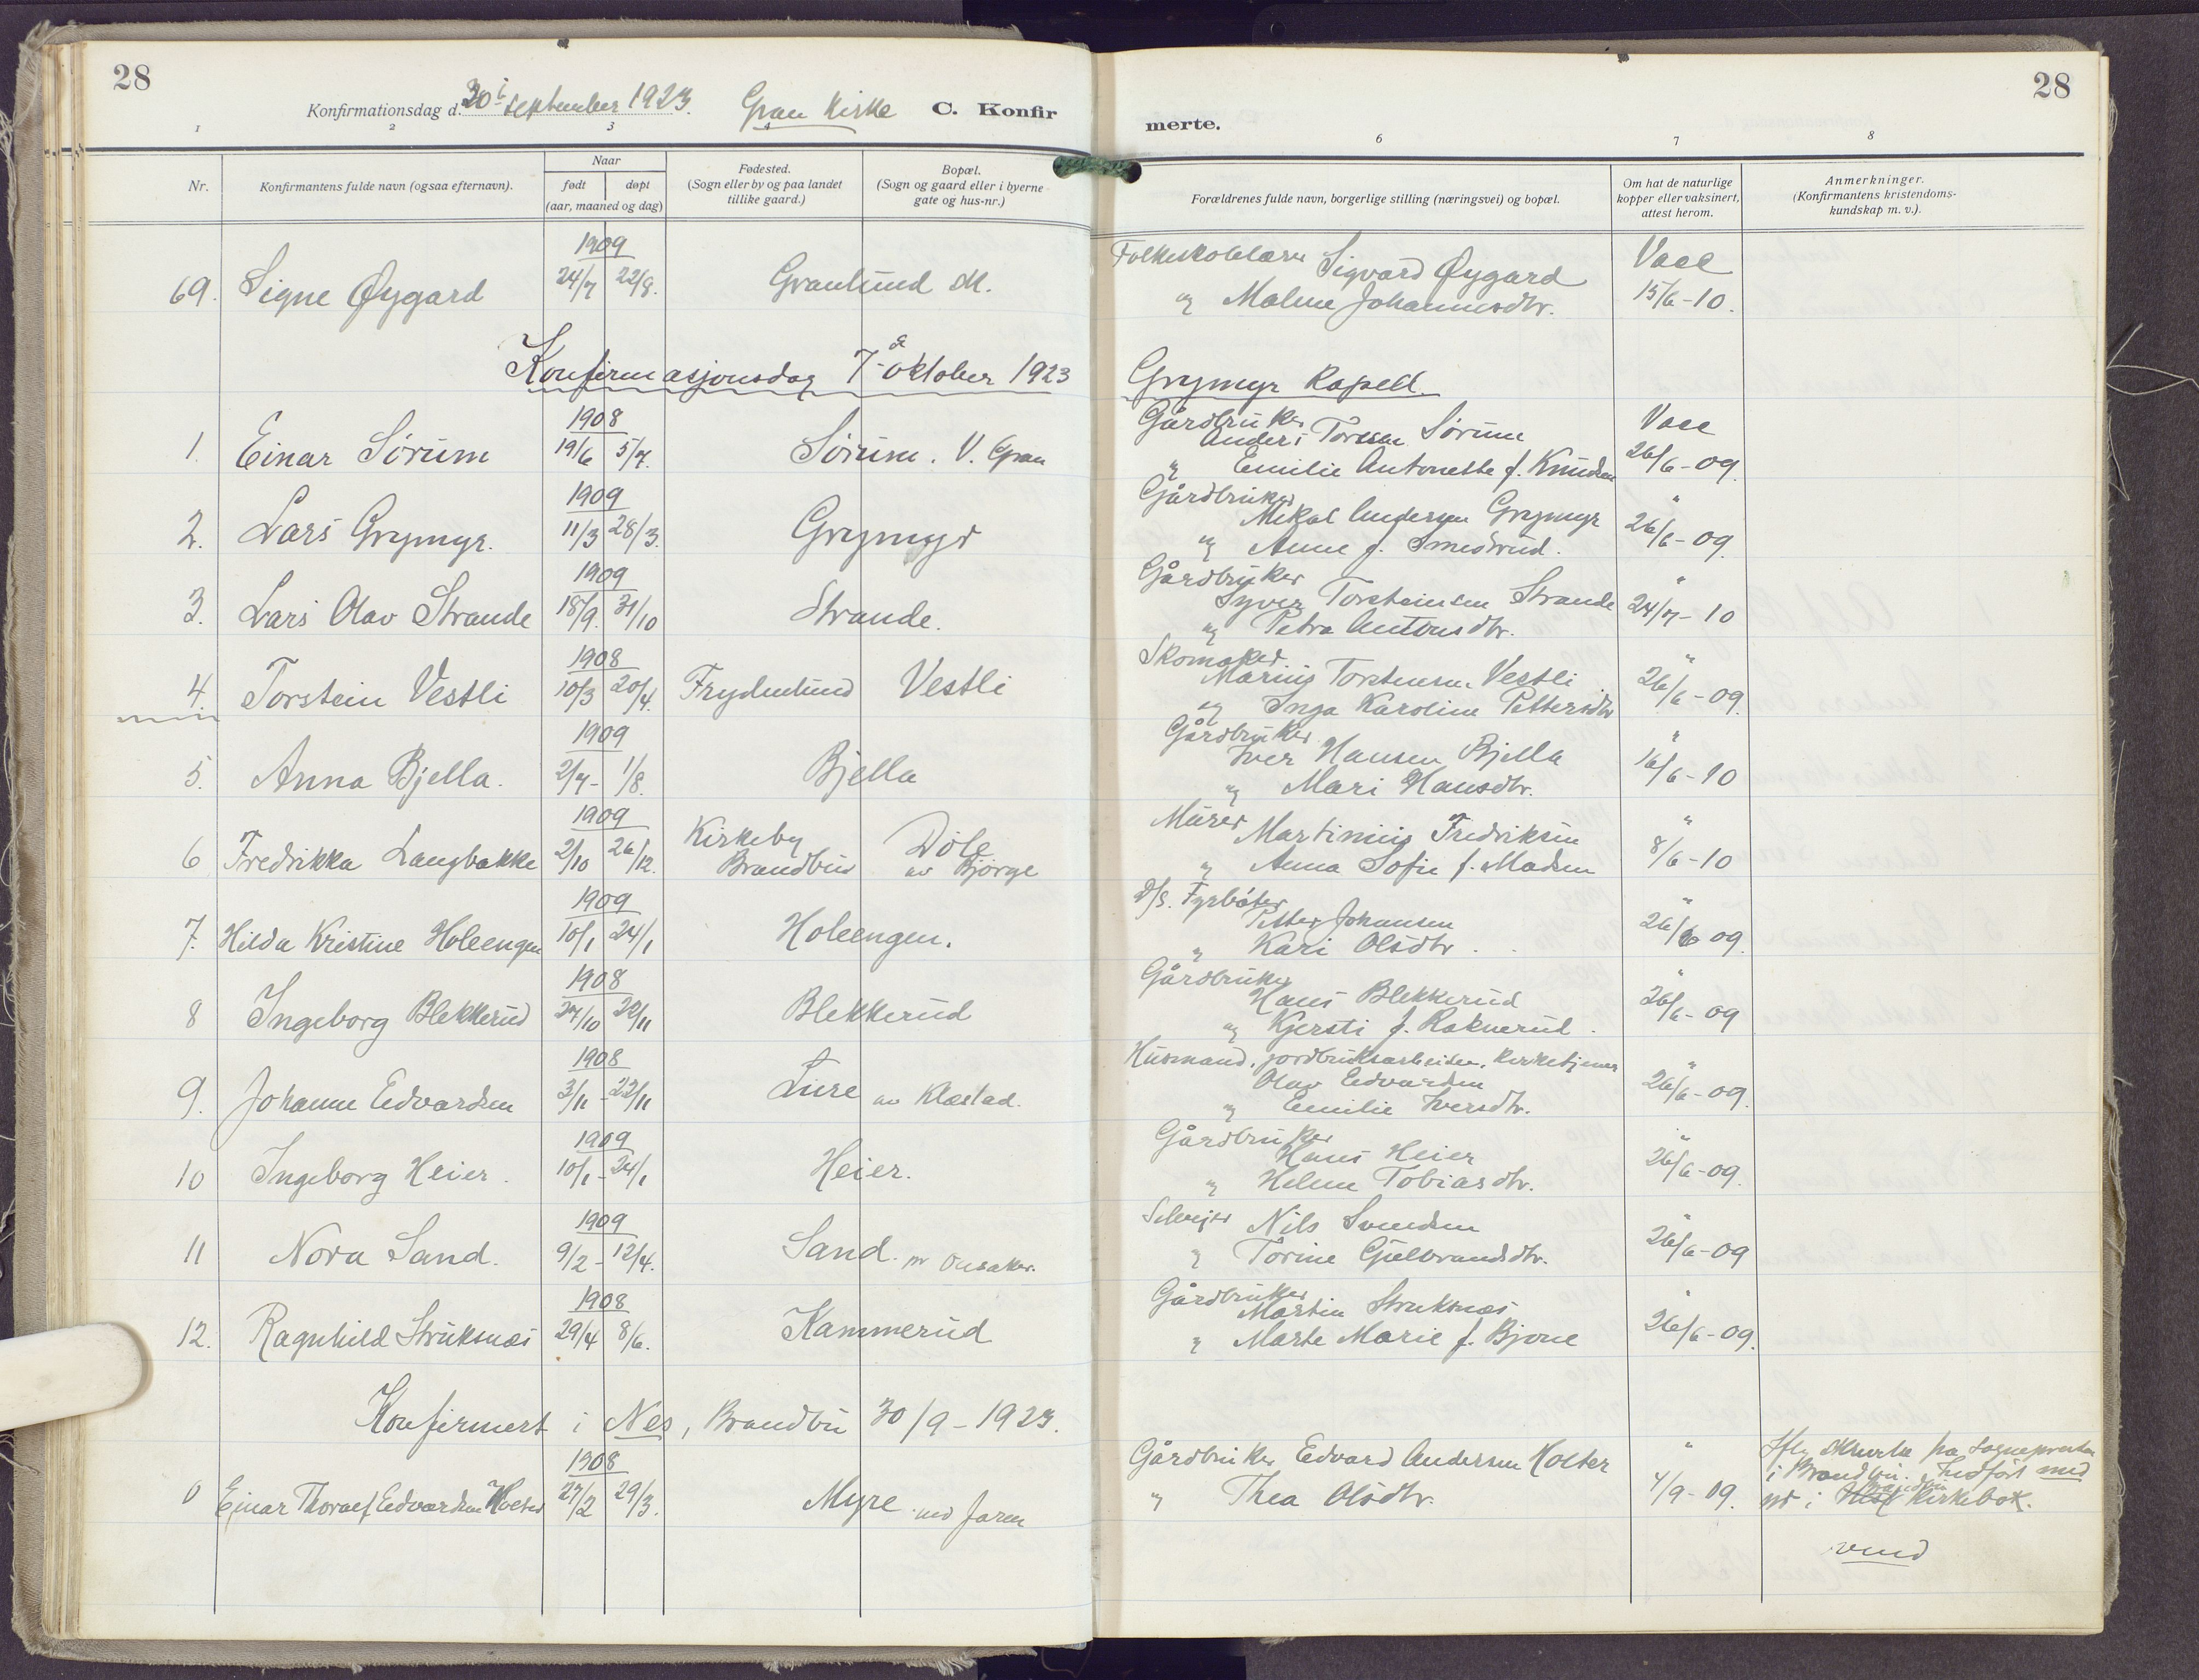 28
Konfirmationsdag d. 30 september 1923. Gran Kirke C. Konfir
1 2 3 4
Nr. Konfirmantens fulde navn (ogsaa efternavn). Naar født døpt (aar, maaned og dag) Fødested. (Sogn eller by og paa landet tillike gaard.) Bopæl. (Sogn og gaard eller i byerne gate og hus-nr.)
1909
69. Signe Øygard 24/7 22/8. Granlund
Konfirmasjonsdag 7de oktober 1923
1908
1. Einar Sørum 19/6 5/7. Sørum. V. Gran
1909
2. Lars Grymyr. 11/3 28/3. Grymyr
1909
3. Lars Olav Strande 18/9. 31/10 Strande.
1908
4. Torstein Vestli 10/3 20/4. Frydenlund Vestli
1909
5. Anna Bjella. 2/7 - 1/8. Bjella
1909
6 Fredrikka Langbakke 2/10 26/12. Kirkeby Brandbu Døle av Bjørge
1909
7. Hilda Kristine Holeengen 10/1 24/1 Holeengen.
1908
8 Ingeborg Blekkerud 27/10 22/11 Blekkerud
1908
9. Johanne Edvardsen 3/11 - 22/11 Lure av Klæstad.
1909
10 Ingeborg Heier. 10/1 - 24/1 Heier.
1909
11 Nora Sand. 9/2 - 12/4. Sand. pr Onsaker.
1908
12. Ragnhild Struksnæs 29/4 8/6. Kammerud
Konfirmert i Nes, Brandbu 30/9 - 1923.
1908
0 Einar Thoralf Edvardsen Holter 27/2 29/3. Myre ved Jaren
28
merte.
6 7 8
Forældrenes fulde navn, borgerlige stilling (næringsvei) og bopæl. Om hat de naturlige kopper eller vaksinert, attest herom. Anmerkninger. (Konfirmantens kristendoms- kundskap m. v.).
Folkeskolelærer Sigvard Øygard Vacc
og Malene Johannesdtr. 15/6 - 10.
Grymyr Kapell.
Gårdbruker Vacc
Anders Torsen Sørum
" Emilie Antonette f. Knudsen 26/6 - 09.
Gårdbruker "
Mikal Andersen Grymyr 26/6 - 09.
og Anne f. Smedsrud.
Gårdbruker "
Syver Torsteinsen Strande 24/7 - 10
og Petra Antonsdtr.
Skomaker "
Marius Torstensen Vestli
og Inga Karoline Pettersdtr 26/6 - 09.
Gårdbruker "
Iver Hansen Bjella 16/6 - 10
og Mari Hansdtr.
Murer Martinius Fredriksen "
og Anna Sofie f. Madsen 8/6 - 10
D/S. Fyrbøter "
Petter Johansen 26/6 09.
" Kari Olsdtr.
Gårdbruker "
Hans Blekkerud 26/6 - 09
og Kjersti f. Raknerud.
Husmand, jordbruksarbeider, kirketjener "
Olav Edvardsen 26/6 - 09.
" Emilie Iversdtr.
Gårdbruker "
Hans Heier 26/6 - 09.
" Helene Tobiasdtr.
Selveier Nils Svendsen "
" Torine Gulbrandsdtr. 26/6 - 09
Gårdbruker "
Martin Struksnæs
" Marte Marie f. Bjone 26/6 - 09.
Gårdbruker Edvard Andersen Holter "
" Thea Olsdtr. 4/9 - 09.
Iflg skrivelse fra sognepresten
i Brandbu. Indført med
nr i Brandbu Kirkebok.
vend